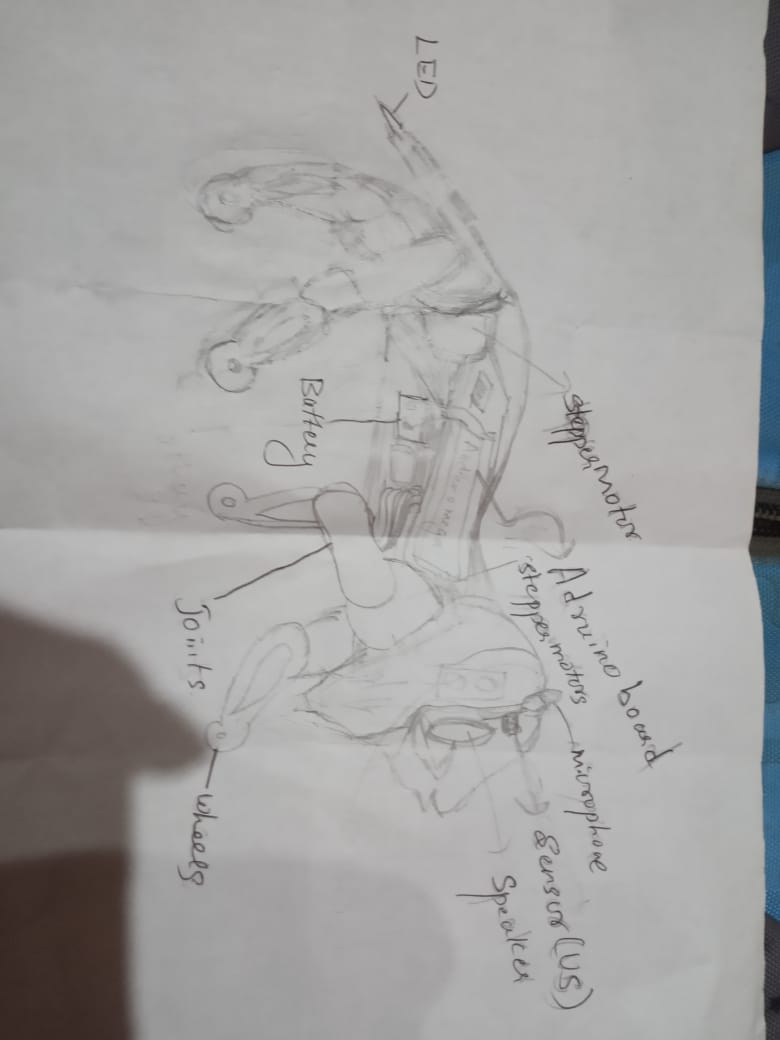 stepper motor
Adruino board
stepper motors
microphone
Sensor (US)
Speaker
LED
Battery
Joints
wheels